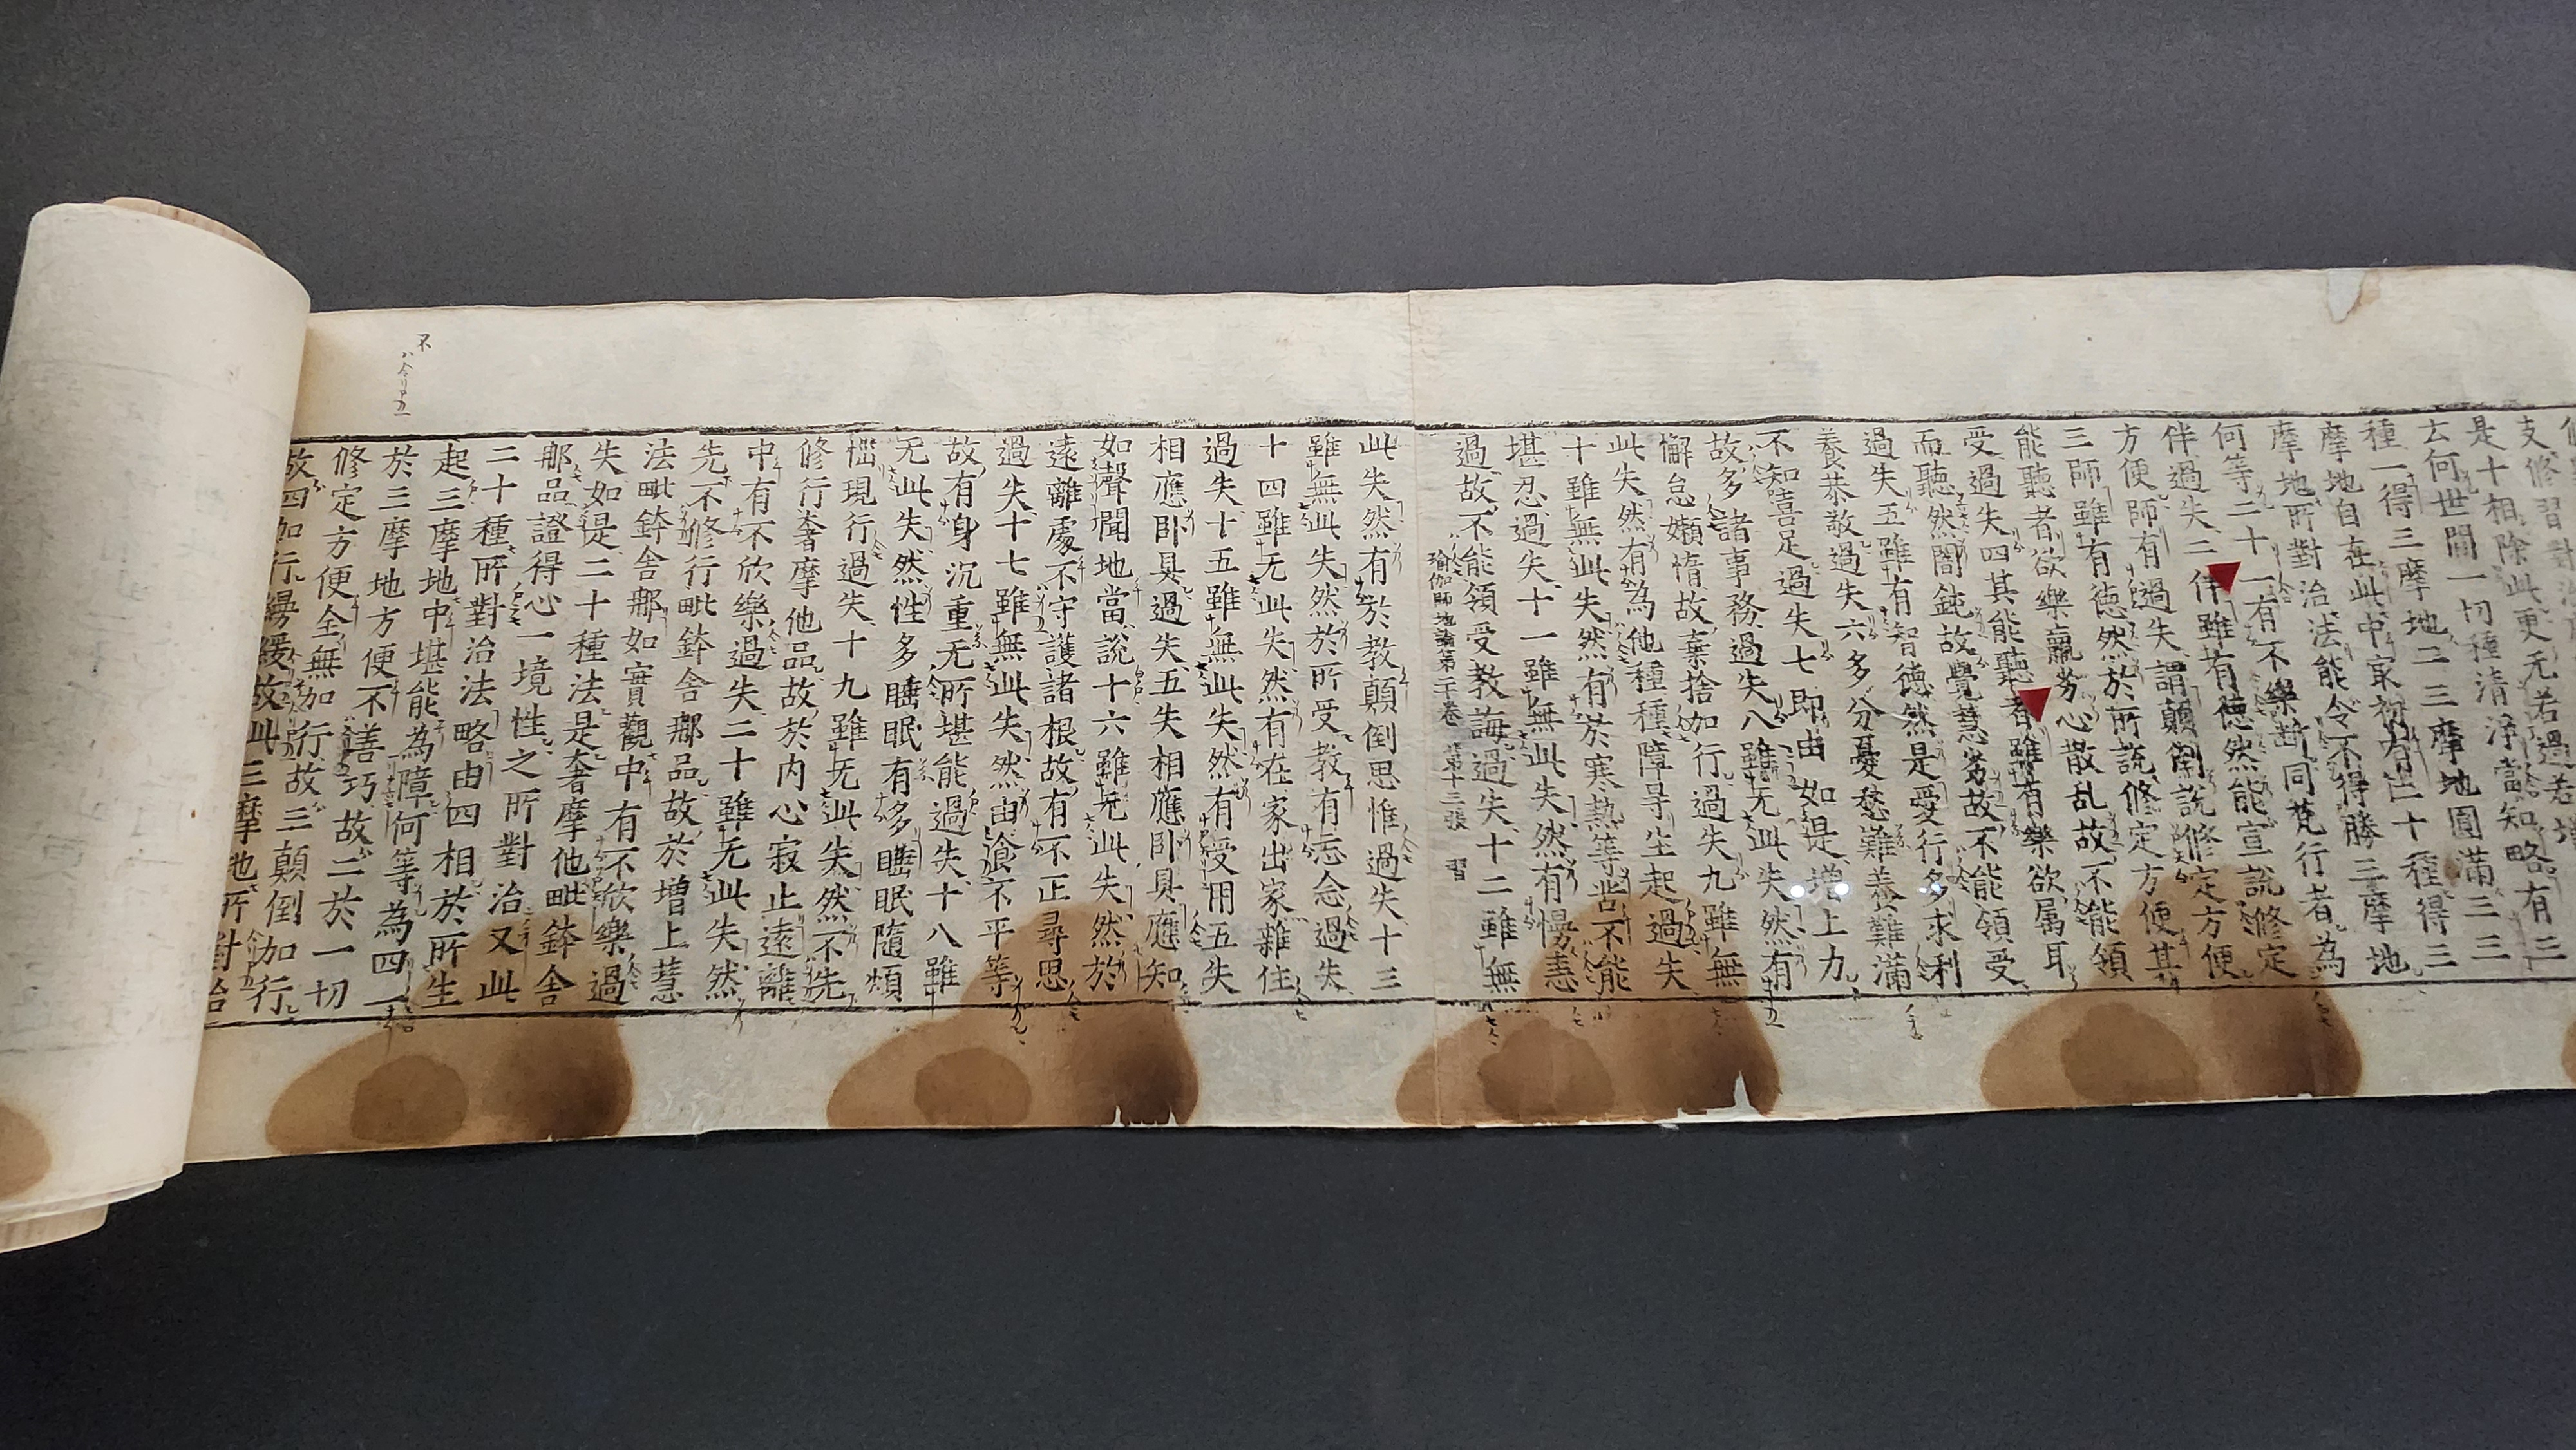 是十相除此更无若過若增
云何世間一切種清淨當知略有三
種一得三摩地二三摩地圓滿三三
摩地自在此中㝡初有二十種得三
摩地所對治法能令不得勝三摩地
何等二十一有不樂斷同梵行者為
伴過失二伴雖有徳然能宣說修定
方便師有過失謂顛倒說修定方便
三師雖有徳然於所說修定方便其
能聽者欲樂羸劣心散乱故不能領
受過失四其能聽者雖有樂欲属耳
而聽然闇鈍故覺慧劣故不能領受
過失五雖有智徳然是愛行多求利
養恭敬過失六多分憂愁難養難滿
不知喜足過失七即由如是增上力
故多諸事務過失八雖无此失然有
懈怠嬾惰故棄捨加行過失九雖無
此失然有為他種種障㝵生起過失
十雖無此失然有於寒熱等苦不能
堪忍過失十一雖無此失然有慢恚
過故不能領受教誨過失十二雖無
瑜伽師地論第二十卷 第十三張 習
此失然有於教顛倒思惟過失十三
雖無此失然於所受教有忘念過失
十四雖无此失然有在家出家雜住
過失十五雖無此失然有受用五失
相應卧具過失五失相應卧具應知
如聲聞地當說十六雖无此失然於
遠離處不守護諸根故有不正尋思
過失十七雖無此失然由食不平等
故有身沉重无所堪能過失十八雖
无此失然性多睡眠有多睡眠隨煩
惱現行過失十九雖无此失然不先
修行奢摩他品故於内心寂止遠離
中有不欣樂過失二十雖无此失然
先不修行毗鉢舍那品故於增上慧
法毗鉢舍那如實觀中有不欣樂過
失如是二十種法是奢摩他毗鉢舍
那品證得心一境性之所對治又此
二十種所對治法略由四相於所生
起三摩地中堪能為障何等為四一
於三摩地方便不善巧故二於一切
修定方便全無加行故三顛倒加行
故四加行縵緩故此三摩地所對治